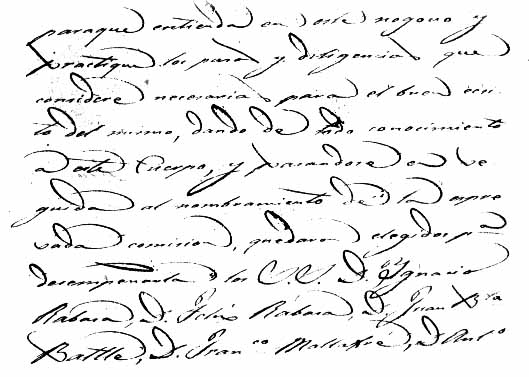 paraque entienda en este negocio y
practique los pasos y diligencias que
considere necesarias para el buen exi-
to del mismo, dando de todo conocimiento
a este Cuerpo, y pasandose en se
guida al nombramiento de la expre
sada comision, quedaron elegidos pa
desempeñarla los S.S. D. Ignacio
Rabasa, D. Felix Rabasa, D. Juan Bta
Batlle, D. Franco Mallafre, D. Anto